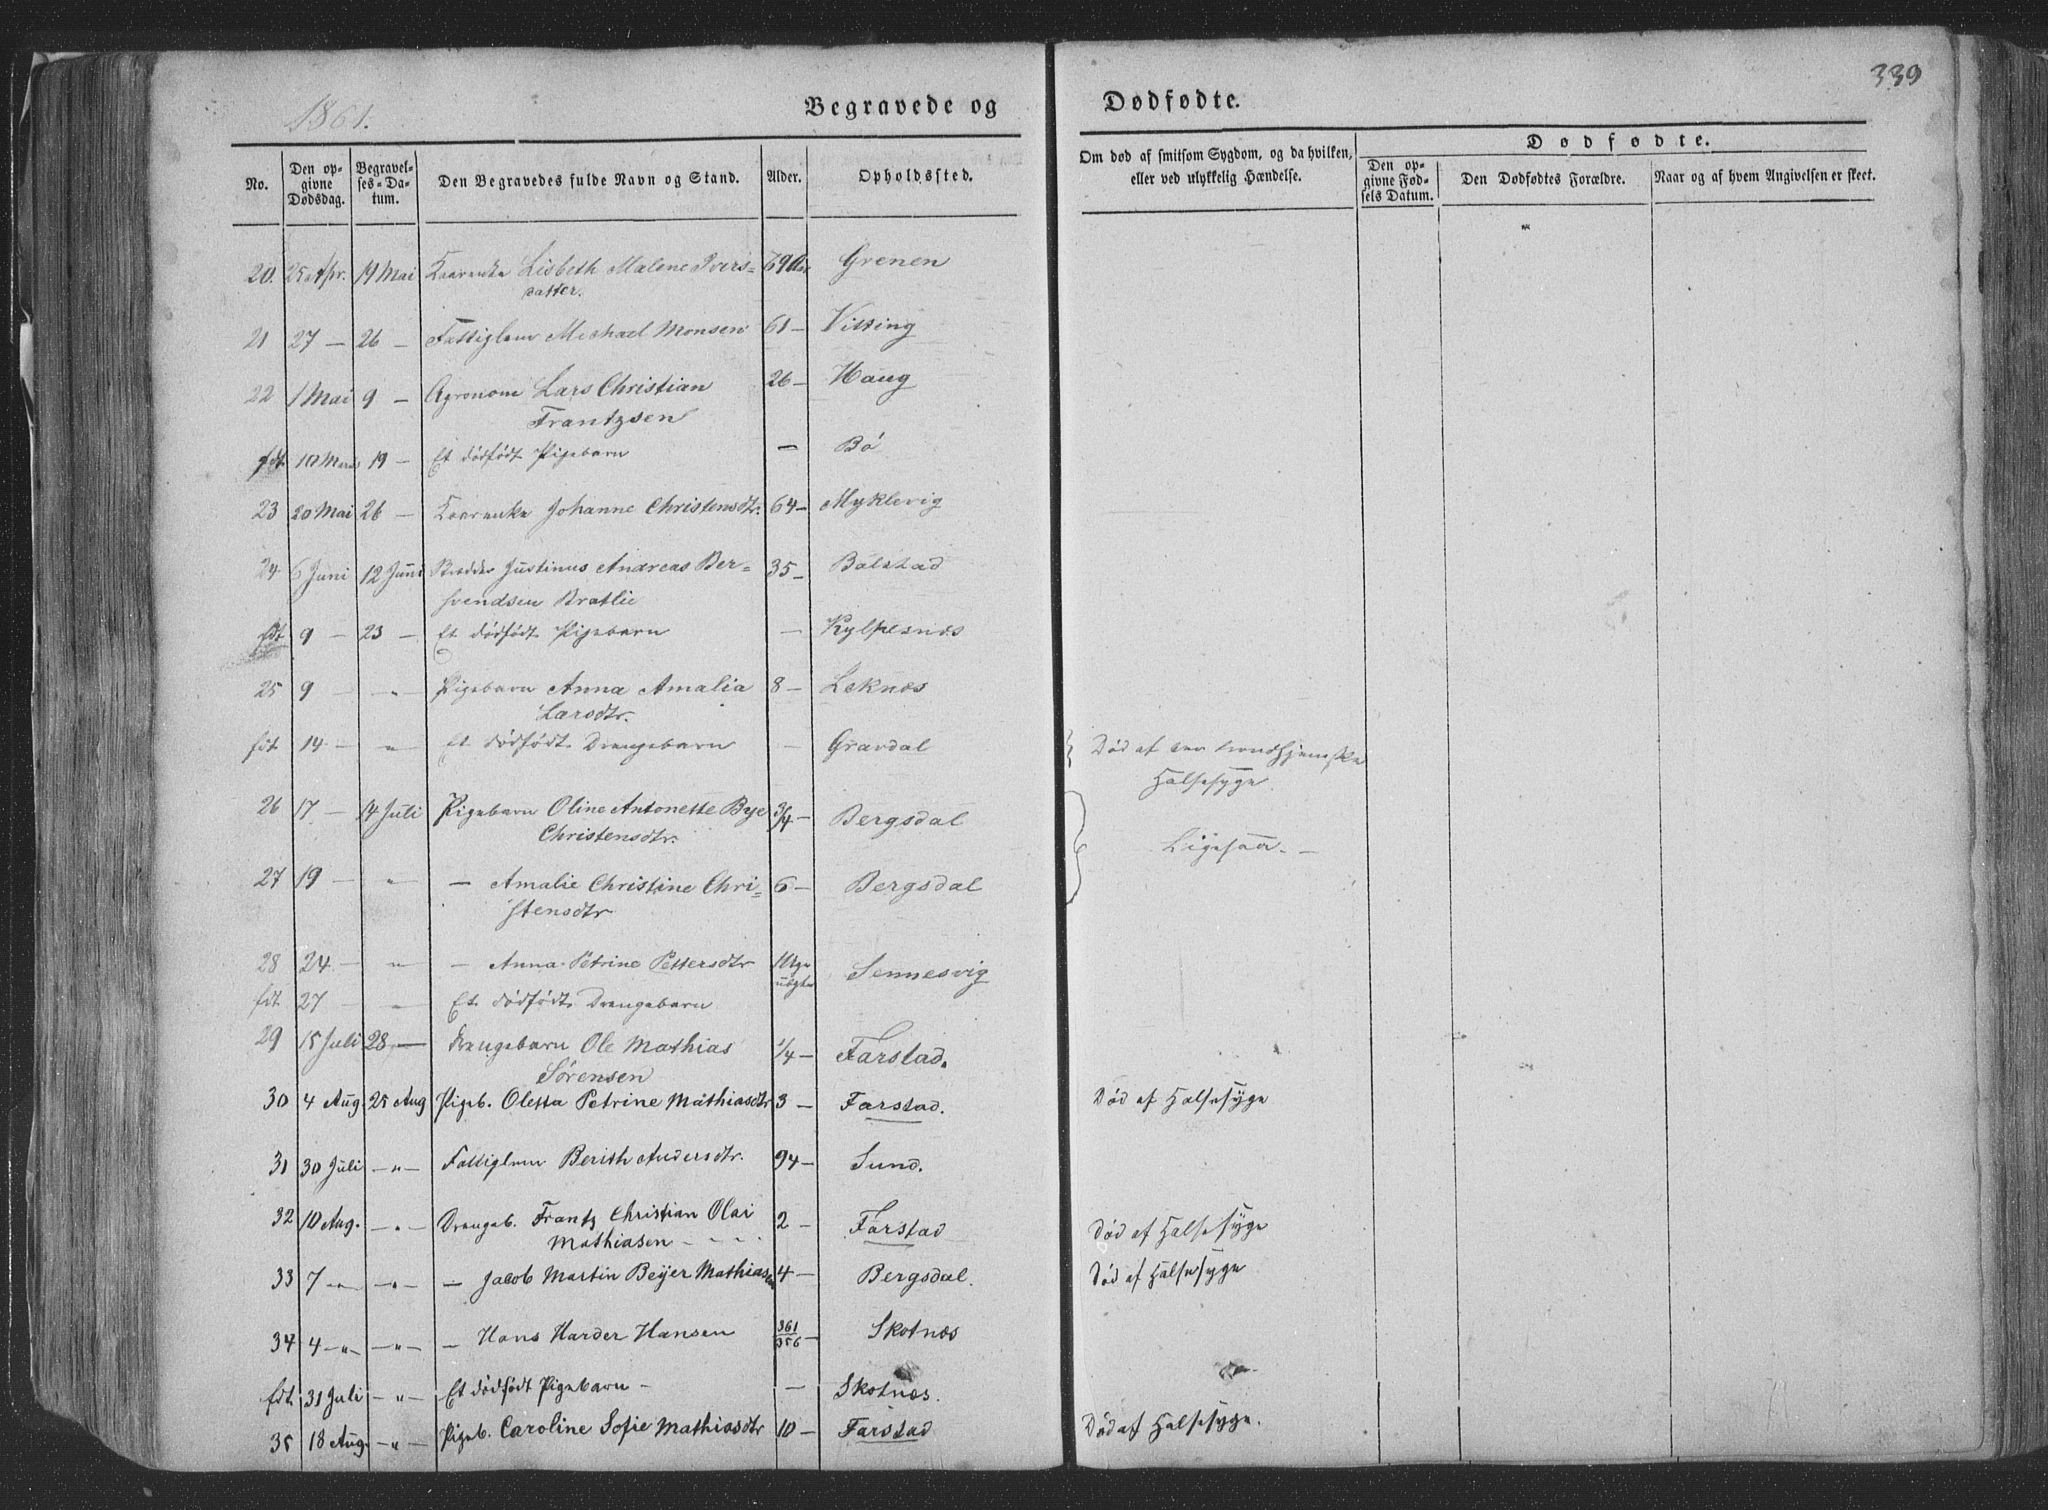 339
1861.
Begravede og Dødfødte.
No. Den opgivne Dødsdag. Begravelses-Datum. Den Begravedes fulde Navn og Stand. Alder. Opholdssted.
Om død af smitsom Sygdom, og da hvilken, eller ved ulykkelig Hændelse.
Dødfødte.
Den opgivne Fødsels Datum. Den Dødfødtes Forældre. Naar og af hvem Angivelsen er skeet.
20. 25 Apr. 19 Mai Kaarenke Lisbeth Malene Ivers= 69 Aar Grenen
datter.
21 27 — 26 — Fattiglem Michael Monsen 61 — Vitting
22 1 Mai 9 — Agronom Lars Christian 26 — Haug
Frantzsen
fdt 10 Mai 19 — Et dödfödt Pigebarn — Bö
23 20 Mai 26 — Kaarenke Johanne Christensdtr. 64 — Myklevig
24 6 Juni 12 Juni Justinus Andreas Ber= 35 — Balstad
svendsen Bratlie
fdt 9 — 23 — Et dödfödt Pigebarn — Kylpesnæs
25 9 — " Pigebarn Anna Amalia 8 — Leknæs
Larsdtr.
fdt 14 — " Et dödfödt Drengebarn — Gravdal
26 17 — 14 Juli Pigebarn Oline Antonette Bye 3/4 — Bergsdal Död af den trondhjemske
Christensdtr. Halsesyge.
27 19 — " — Amalie Christine Chri= 6 — Bergsdal Ligesaa. —
stensdtr
28 24 — " — Anna Petrine Pettersdtr 10 Sennesvig
fdt 27 — " Et dödfödt Drengebarn
29 15 Juli 28 — Drengebarn Ole Mathias 1/4 — Farstad.
Sörensen
30 4 Aug. 25 Aug Pigeb. Oletta Petrine Mathiasdtr 3 — Farstad. Död af Halsesyge
31 30 Juli — " — Fattiglem Berith Andersdtr. 94 — Sund.
32 10 Aug. — " — Drengeb. Frantz Christian Olai 2 — Farstad Död af Halsesyge
Mathiasen
33 7 — " — " — — Jacob Martin Beyer Mathiasen 4 — Bergsdal. Död af Halsesyge
34 4 — " — " — — Hans Harder Hansen 361/356 — Skotnæs
fdt. 31 Juli — " — Et dödfödt Pigebarn — — Skotnæs.
35 18 Aug. — " — Pigeb. Caroline Sofie Mathiasdtr 10 — Farstad Död af Halsesyge.